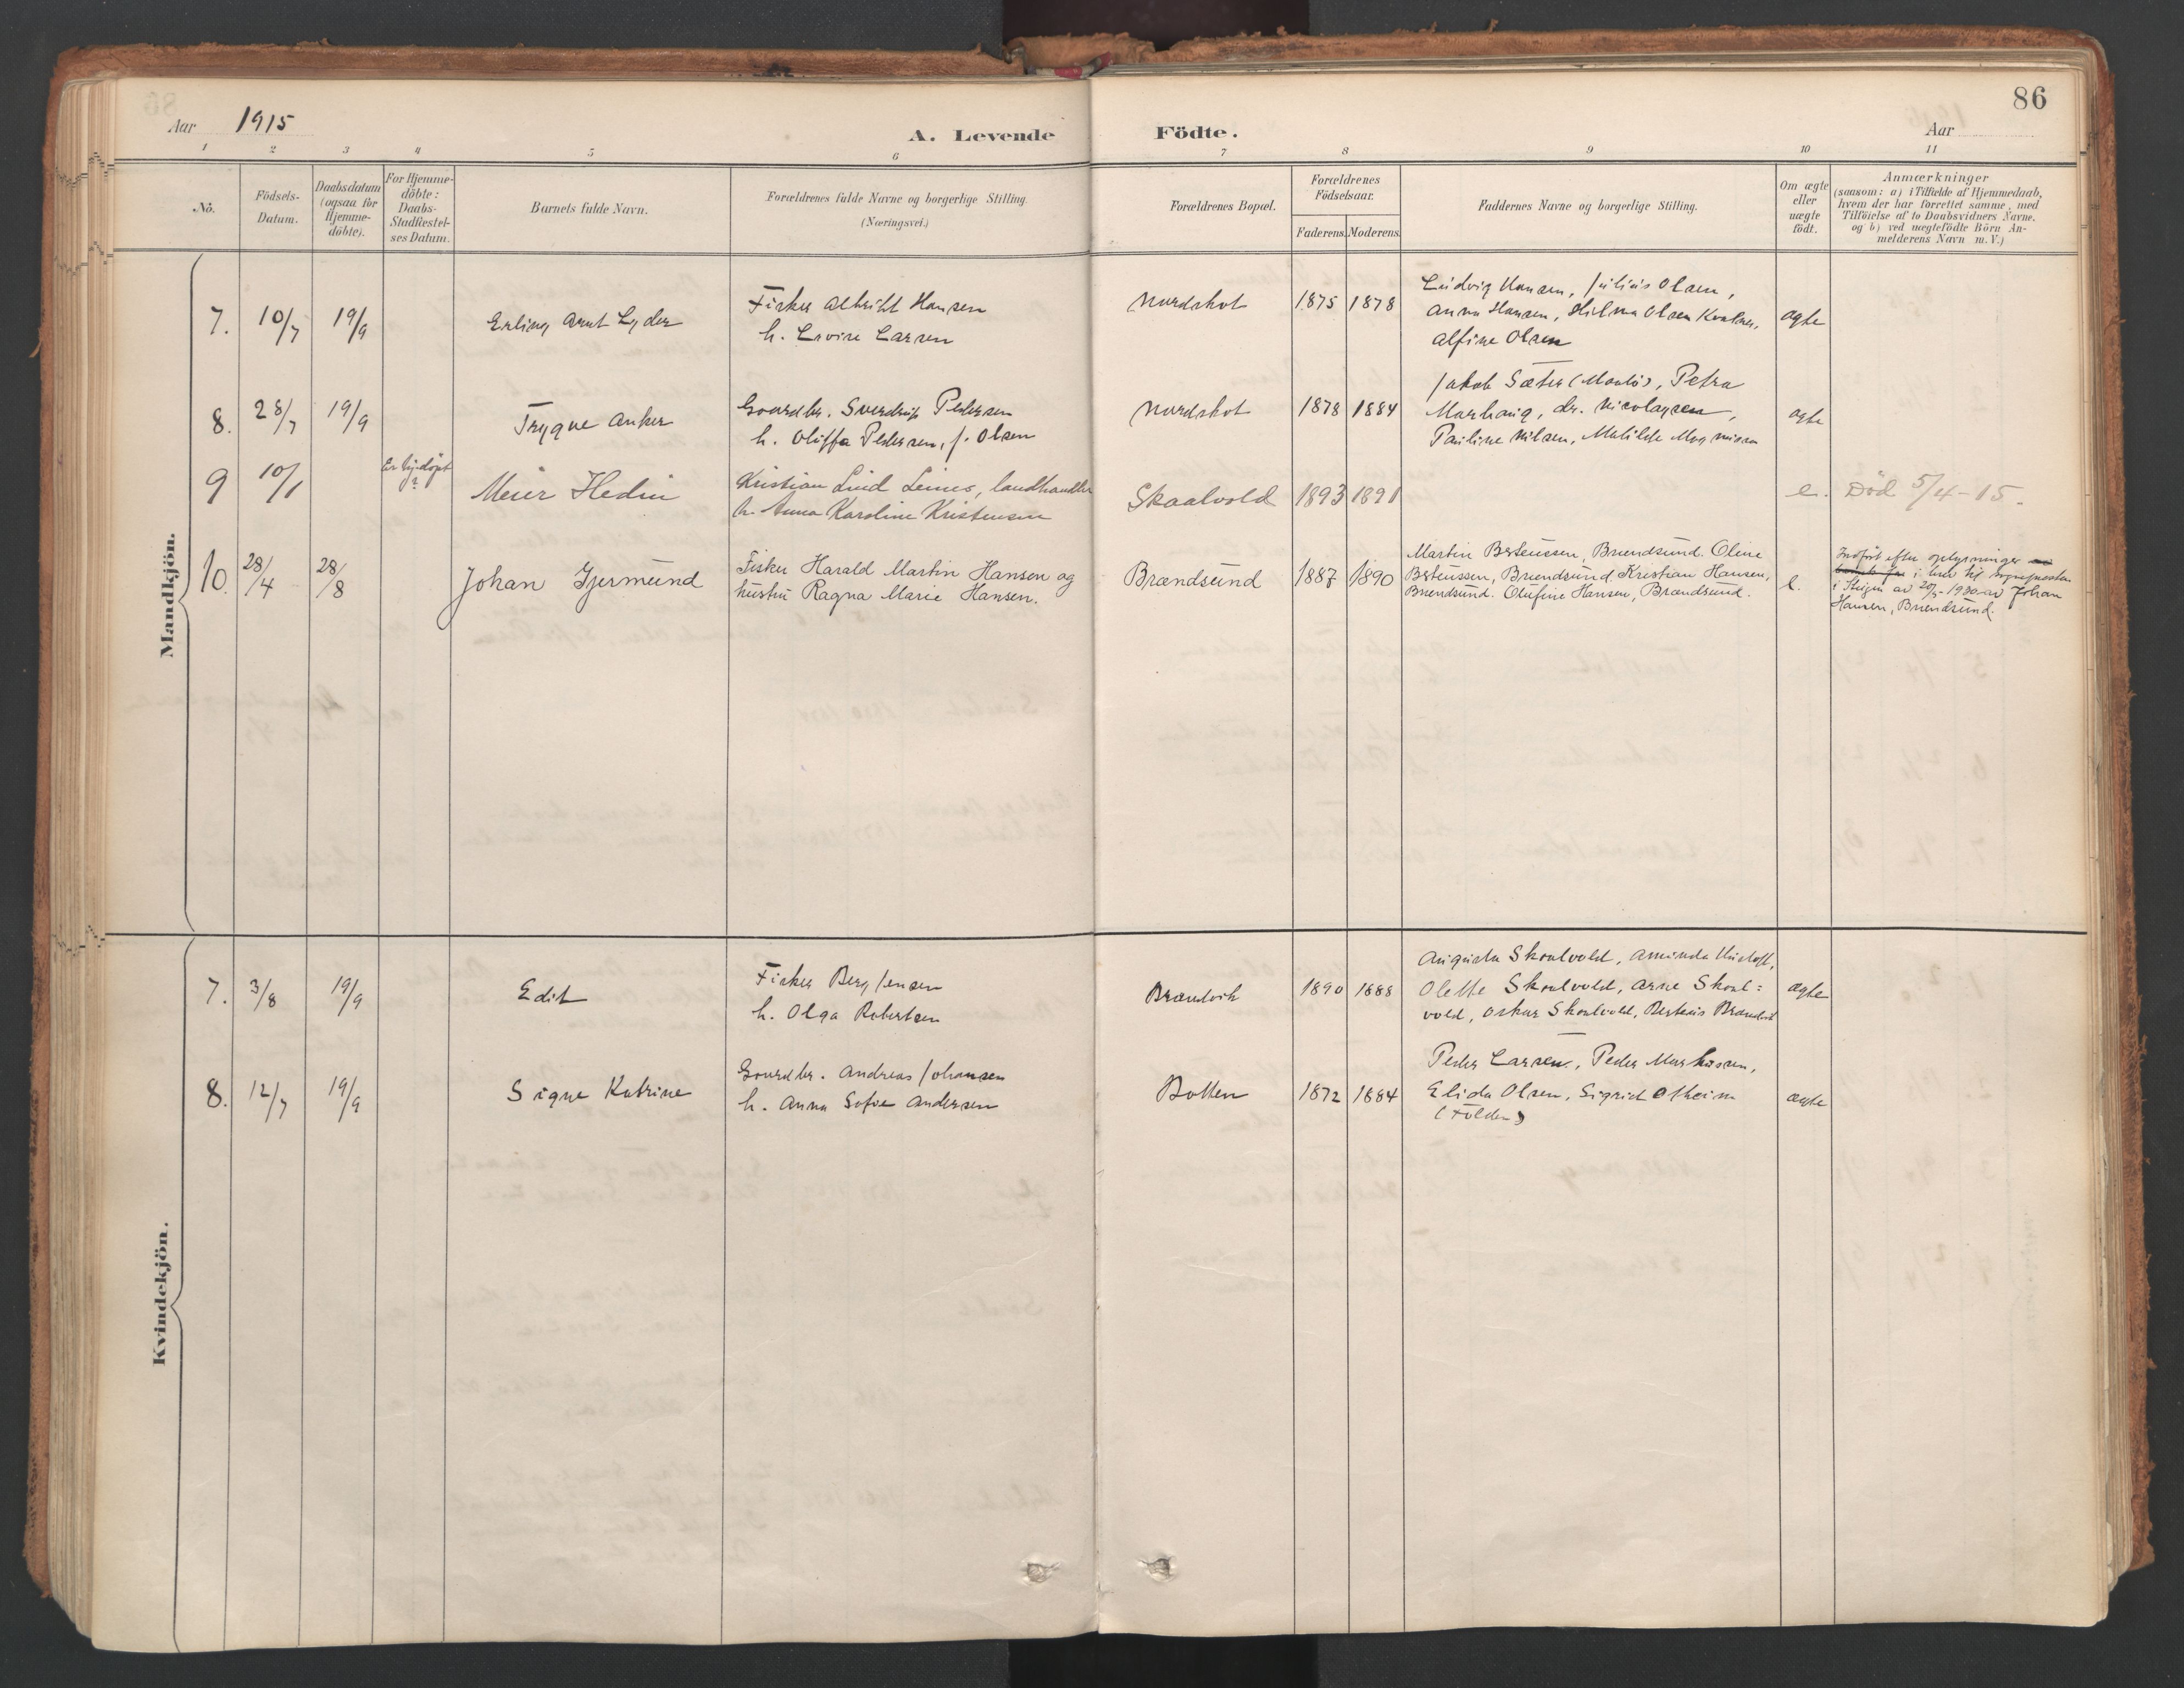 86
Aar 1915
A. Levende Födte.
Aar
1 2 3 4 5 6 7 8 9 10 11
No.
Födsels-Datum.
Daabsdatum (ogsaa for Hjemme-döbte).
For Hjemme-döbte: Daabs-Stadfæstel-ses Datum.
Barnets fulde Navn.
Forældrenes fulde Navne og borgerlige Stilling.
(Næringsvei.)
Forældrenes Bopæl.
Forældrenes Födselsaar.
Faderens. Moderens.
Faddernes Navne og borgerlige Stilling.
Om ægte eller uægte födt.
Anmærkninger
(saasom: a) i Tilfælde af Hjemmedaab,
hvem der har forrettet samme, med
Tilföielse af to Daabsvidners Navne.
og b) ved uægtefödte Börn An-
melderens Navn m. V.)
Mandkjön.
7. 10/7 19/9 Erling Arnt Lyder
Fisker Albricht Hansen
h. Lovise Larsen
Nordskot 1875 1878
Ludvig Hansen, Julius Olsen,
Anna Hansen, Hilma Olsen
Alfine Olsen
ægte
8. 28/7 19/9 Trygve Anker
Gaardbr. Sverdrup Pedersen
h. Oliffa Pedersen, f. Olsen
Nordskot 1878 1884
Jakob Sæter, Petra
Marhaug, dr. Nicolaysen,
Pauline Nilsen, Matilde Magnussen
ægte
9 10/1 Er hj.döpt?
Meier Hedin
Kristian Lind Leines, landhandler
h. Anna Karoline Kristensen
Skaalvold 1893 1891
e. Död 5/4-15.
10. 28/4 28/8 Johan Gjermund
Fisker Harald Martin Hansen og
hustru Ragna Marie Hansen.
Brændsund 1887 1890
Martin Berteussen, Brændsund. Oline
Berteussen, Brændsund, Kristian Hansen,
Brændsund. Olufine Hansen, Brændsund.
e.
Indfört efter oplysninger
i brev til sognepresten
i Steigen av 20/5-1930 av Johan
Hansen, Brændsund.
Kvindekjön.
7. 3/8 19/9 Edit
Fisker Berg Jensen
h. Olga Robertsen
Brændvik 1890 1888
Augusta Skaalvold, Aminda
Olette Skaalvold, Arne Skaal=
vold, Oskar Skaalvold, Berteus Brændvik
ægte
8. 12/7 19/9 Signe Katrine
Gaardbr. Andreas Johansen
h. Anna Sofie Andersen
Botten 1872 1884
Peder Larsen, Peder Markussen,
Elida Olsen, Sigrid Otheim
(Folden)
ægte